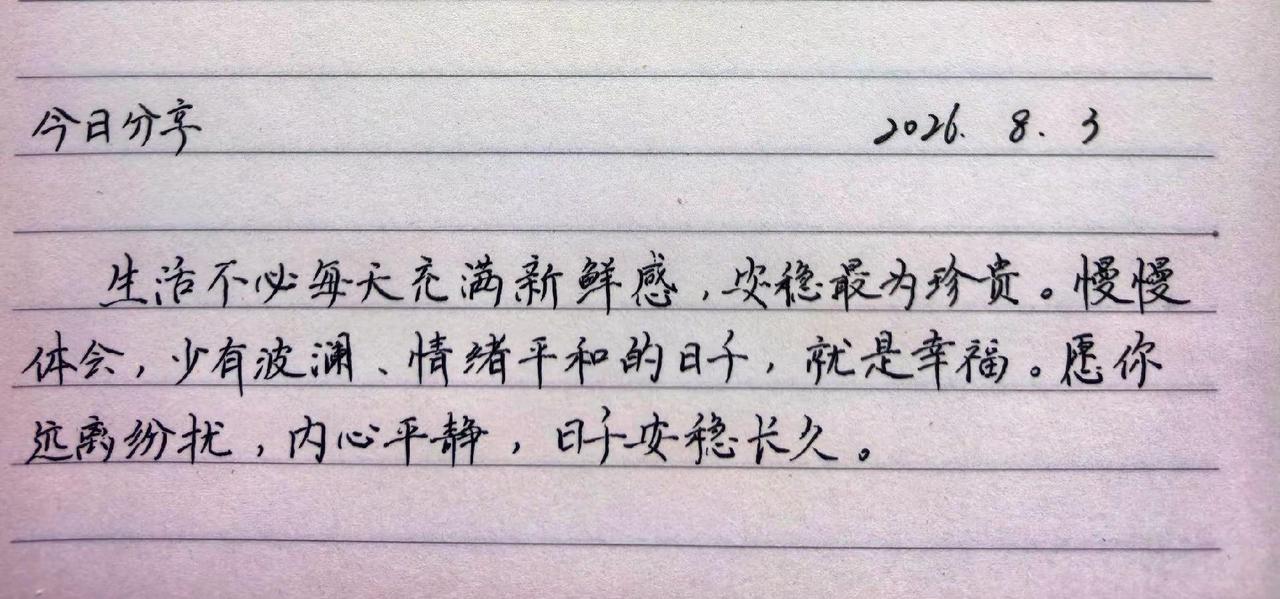 今日分享 2026. 8. 3
生活不必每天充满新鲜感，安稳最为珍贵。慢慢
体会，少有波澜、情绪平和的日子，就是幸福。愿你
远离纷扰，内心平静，日子安稳长久。